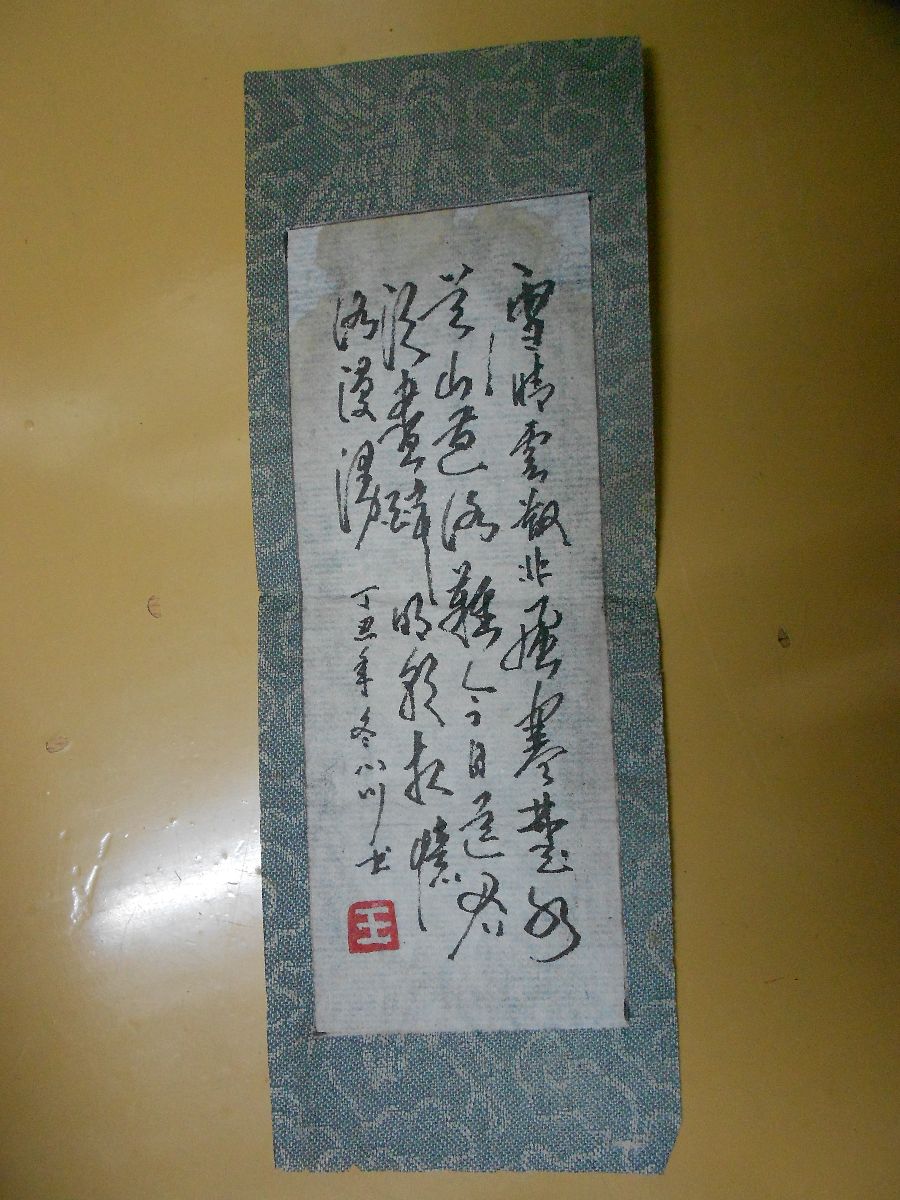 雪晴雲散北風寒楚水
吴山道路難今日送君
須盡醉明朝相憶
路漫漫
丁丑年冬小川书
王